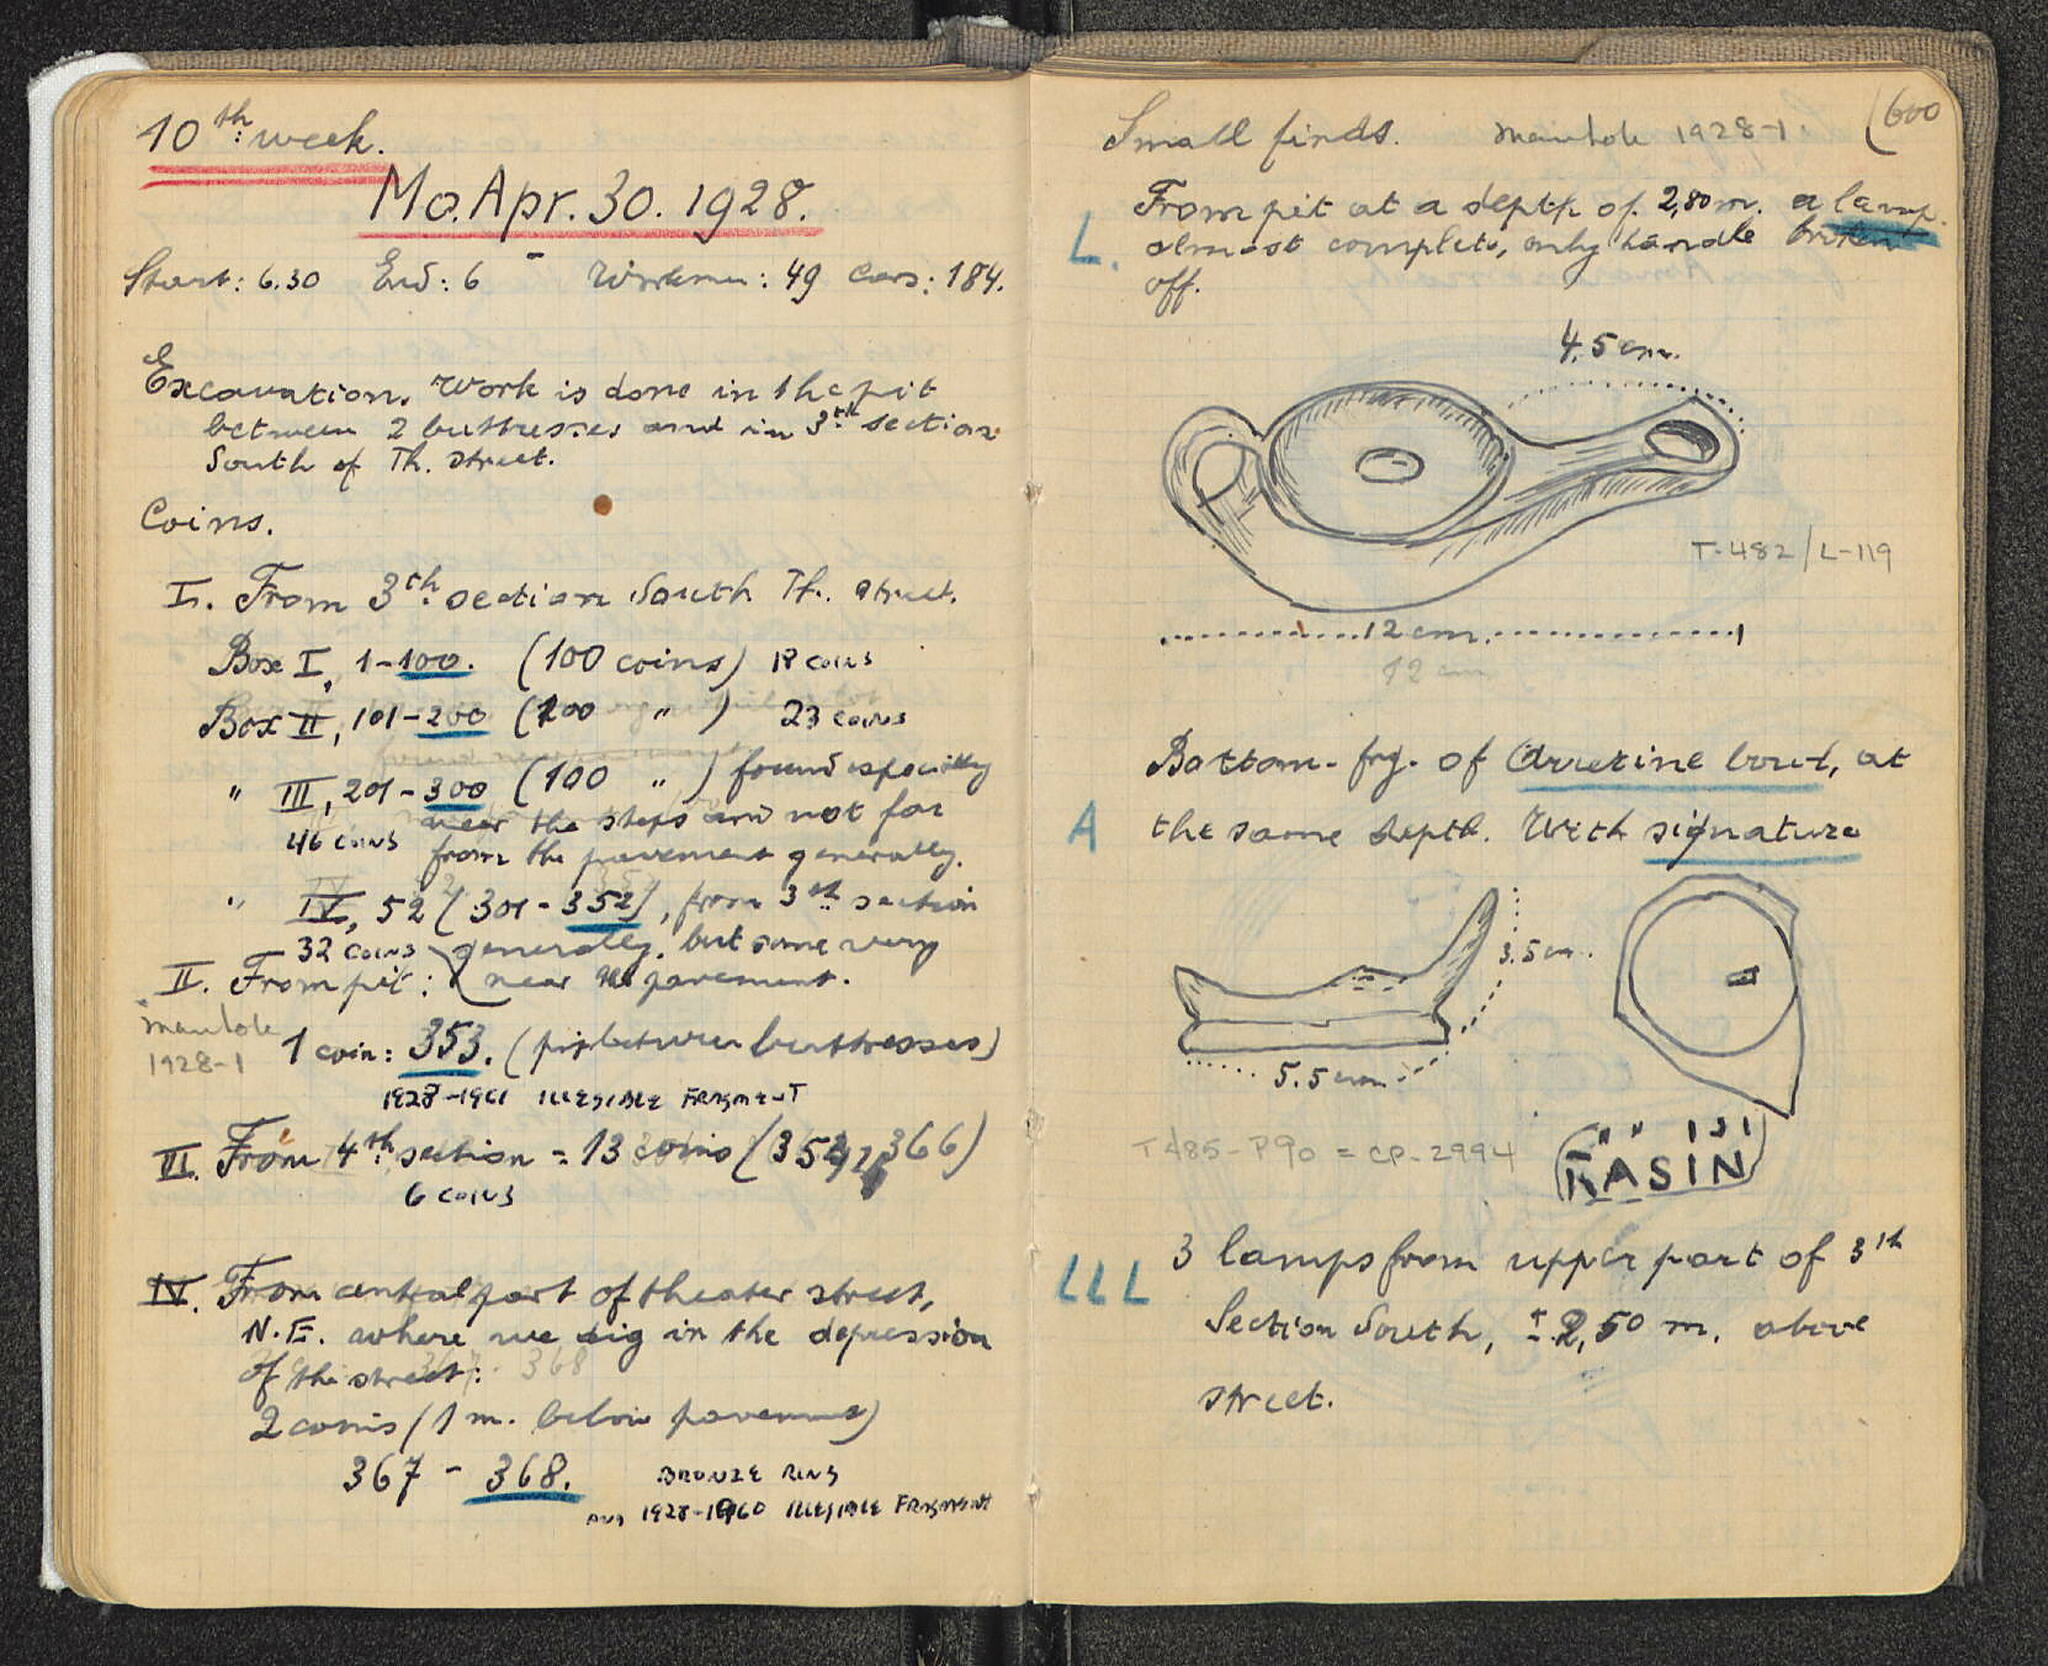 10th week.
Mo. Apr. 30. 1928.
Start: 6.30 End: 6 - Workmen: 49 Cars: 184.
Excavation. Work is done in the pit
between 2 buttresses and in 3th section
South of Th. street.
Coins.
I. From 3th section South Th. street.
Box I, 1-100. (100 coins) 18 coins
Box II, 101-200 (100 " ) 23 coins
" III, 201-300 (100 " ) found especially
near the steps and not far
46 coins from the pavement generally.
" IV, 52 (301-352), from 3th section
32 coins generally, but some very
II. From pit: near the pavement.
manhole
1928-1
1 coin: 353. (pit between buttresses)
1928-1961 ILLEGIBLE FRAGMENT
III. From 4th section = 13 coins (354-366)
6 coins
IV. From central part of theater street,
N.E. where we dig in the depression
of the street: 368
2 coins (1 m. below pavement)
367 - 368. BRONZE RING
AND 1928-1960 ILLEGIBLE FRAGMENT
Small finds. manhole 1928-1. 600
From pit at a depth of 2,80 m. a lamp
L. almost complete, only handle broken
off.
4.5 cm.
T-482/L-119
12 cm.
12 cm
Bottom-frg. of Arretine bowl, at
A the same depth. With signature
3.5 cm.
5.5 cm
T485-P90 = CP-2994
RASIN
3 lamps from upper part of 3th
LLL
Section South, ± 2,50 m. above
street.